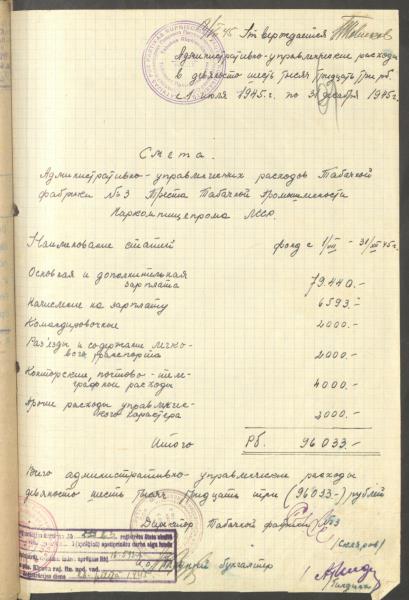 Утверждается
Административно-управленческие расходы
в девяносто шесть тысяч тридцать три рб.
с 1 июля 1945г. по 31 декабря 1945г.
Смета.
Административно-управленческих расходов Табачной
фабрики №3 Треста Табачной промышленности
Наркомпищепрома ЛССР
Наименование статей фонд с 1/VII - 31/XII 45г.
Основная и дополнительная
зарплата 79.440.-
Начисление на зарплату 6593.-
Командировочные 2000.-
Разъезды и содержание легко-
вого транспорта 2000.-
Конторские, почтово-теле-
графные расходы 4000.-
Прочие расходы управленчес-
кого характера 2000.-
Итого Рб. 96033.-
Всего административно-управленческие расходы
девяносто шесть тысяч тридцать три (96033-) рублей
Директор Табачной фабрики №3
Главный бухгалтер